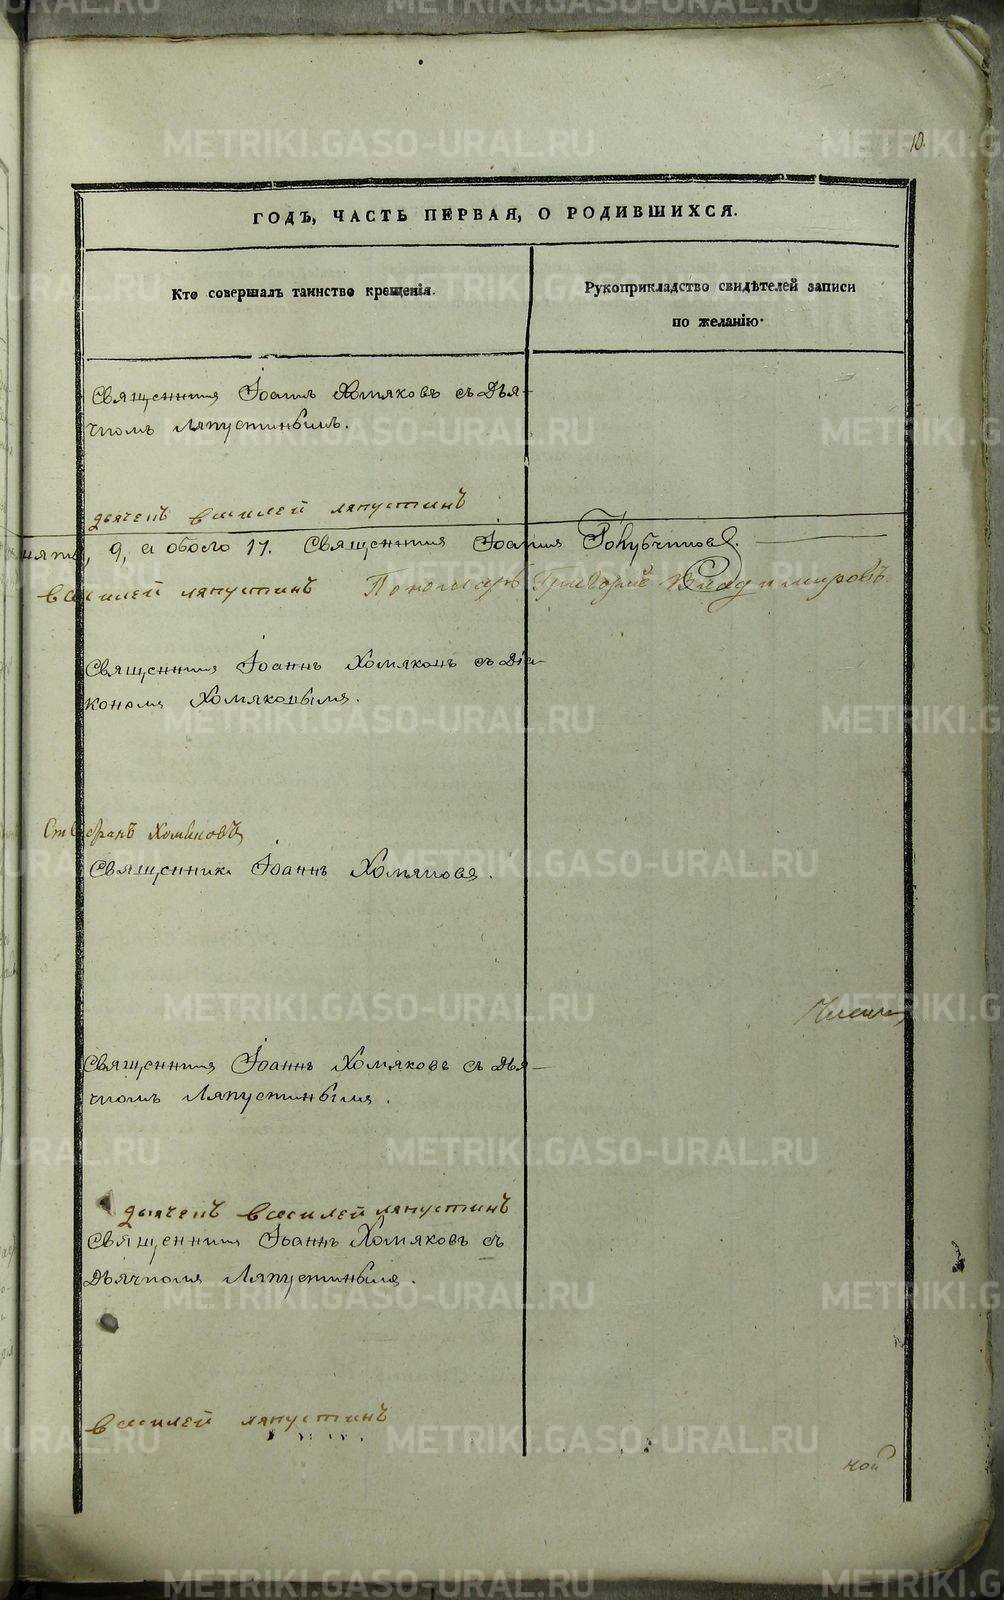 10.
ГОДЪ, ЧАСТЬ ПЕРВАЯ, О РОДИВШИХСЯ.
Кто совершалъ таинство крещенія.
Рукоприкладство свидѣтелей записи
по желанію.
Священникъ Іоаннъ Хомяковъ съ Дья-
чкомъ Ляпустинымъ.
дьячекъ василей ляпустинъ
9, а обоего 17. Священникъ Іоаннъ Голубчиковъ.
василей ляпустинъ Пономарь Григорій Владимировъ.
Священникъ Іоаннъ Хомяковъ съ Діа-
кономъ Хомяковымъ.
Хомяковъ
Священникъ Іоаннъ Хомяковъ.
Священникъ Іоаннъ Хомяковъ съ Дья-
чкомъ Ляпустинымъ.
дьячекъ василей ляпустинъ
Священникъ Іоаннъ Хомяковъ съ
Дьячкомъ Ляпустинымъ.
василей ляпустинъ
ной
METRIKI.GASO-URAL.RU